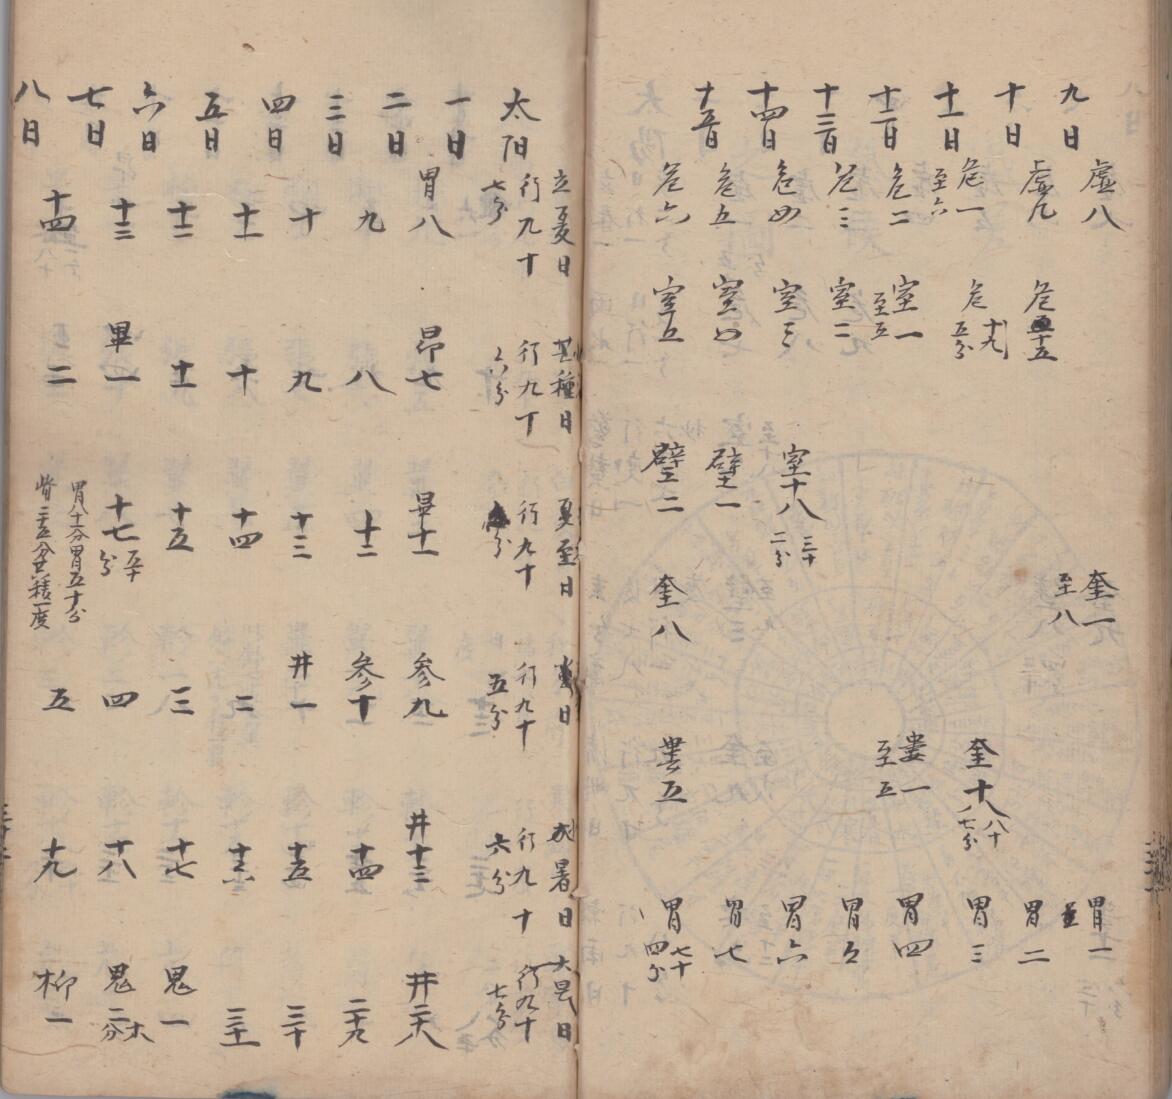 九日 虛八 奎一至八 胃一
十日 虛九 危十五 胃二
十一日 危一至六 危十九五分 奎十八八十七分 胃三
十二日 危二 室一至五 婁一至五 胃四
十三日 危三 室二 胃五
十四日 危四 室三 室十八三十二分 胃六
十五日 危五 室四 壁一 胃七
危六 室五 壁二 奎八 婁五 胃七十四分
太阳 立夏日行九十七分 芒種日行九十六分 夏至日行九十分 日行九十五分 小暑日行九十六分 大暑日行九十七分
一日 胃八 昂七 畢十一 参九 井十三 井二十八
二日 九 八 十二 参十 十四 二十九
三日 十 九 十三 井一 十五 三十
四日 十一 十 十四 二 十六 三十一
五日 十二 十一 十五 三 十七 鬼一
六日 十三 畢一 十七五十分 四 十八 鬼二
七日 十四 二 胃八十分胃五十分 五 十九 柳一
八日